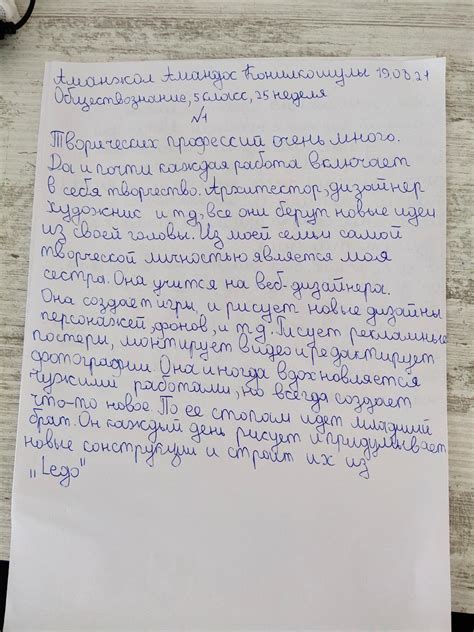 Аманжол Амандос Конилкошулы 190821
Обществознание, 5 класс, 25 неделя
№1
Творических профессий очень много.
Да и почти каждая работа включает
в себя творчество. Архитестор, дизайнер
художник и т д, все они берут новые идеи
из своей головы. Из моей семьи самой
творческой личностью является моя
сестра. Она учится на веб-дизайнера.
Она создает игры, и рисует новые дизайны
персонажей, фонов, и т д. Рисует рекламные
постеры, монтирует видео и редактирует
фотографии Она иногда вдохновляется
чужими работами, но всегда создает
что-то новое. По ее стопам идет младший
брат. Он каждый день рисует и придумывает
новые конструкции и строит их из
„Lego"